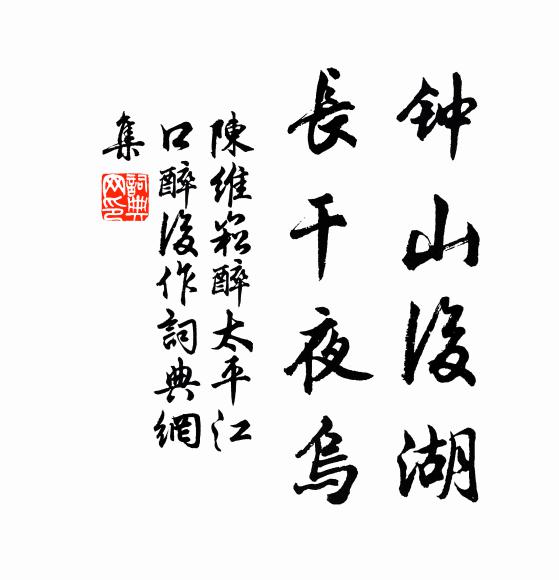 钟山後湖
長干夜烏
陳維崧醉太平江
口醉後作詞典網
集
詞典
网印